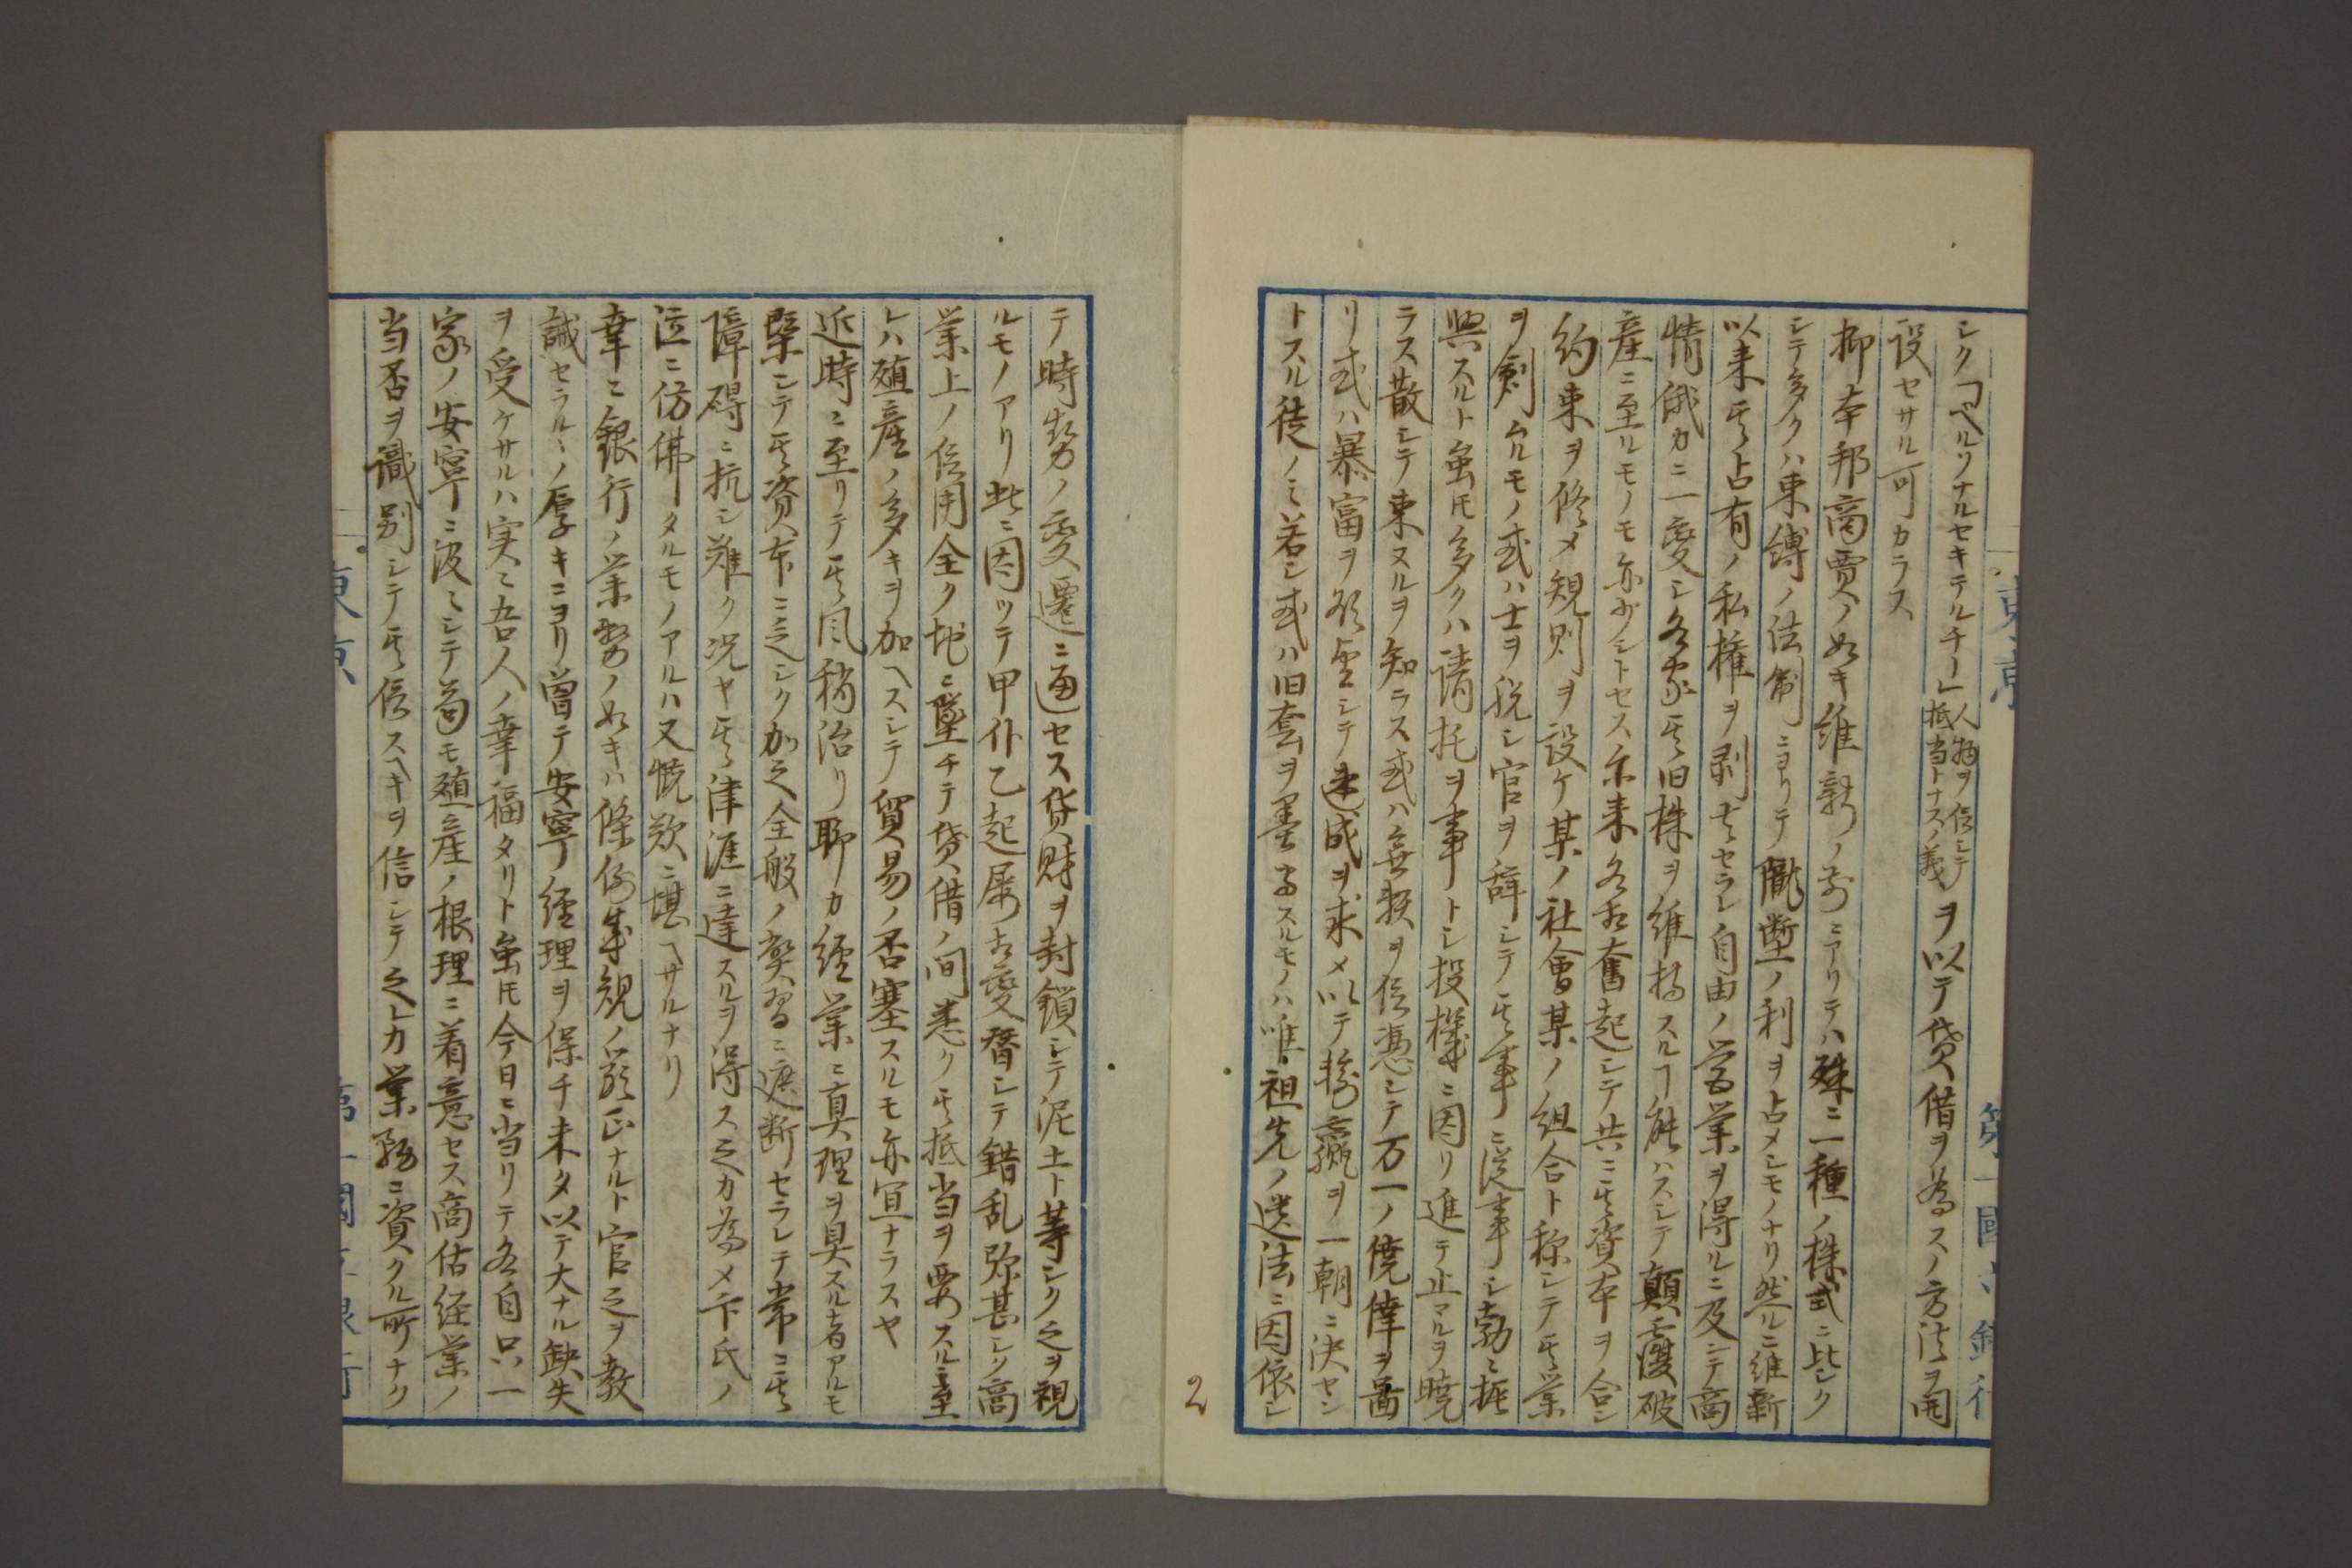 シク「ペルソナルセキテルチー」人物ヲ信シテ抵当トナスノ義ヲ以テ貸借ヲ為スノ方法ヲ開
設セサル可カラス
抑本邦商賈ノ如キ維新ノ前ニアリテハ殊ニ一種ノ株式ニ比シク
シテ多クハ束縛ノ法制ニヨリテ隴断ノ利ヲ占メシモノナリ然ルニ維新
以来其占有ノ私権ヲ剥セラレ自由ノ営業ヲ得ルニ及ンテ商
情俄カニ一変シ各家其旧株ヲ維持スルヿ能ハスシテ顛覆破
産ニ至ルモノモ亦少シトセス尓来各相奮起シテ共ニ其資本ヲ合シ
約束ヲ修メ規則ヲ設ケ某ノ社会某ノ組合ト称シテ其業
ヲ創ムルモノ或ハ士ヲ脱シ官ヲ辞シテ其事ニ従事シ勃々振
興スルト雖𪜈多クハ請托ヲ事トシ投機ニ因リ進テ止マルヲ暁
ラス散シテ束ヌルヲ知ラス或ハ無頼ヲ信憑シテ万一ノ僥倖ヲ図
リ或ハ暴富ヲ欣望シテ速成ヲ求メ以テ輸贏ヲ一朝ニ決セン
トスル徒ノミ若シ或ハ旧套ヲ墨守スルモノハ唯祖先ノ遺法ニ因依シ
2
テ時勢ノ変遷ニ通セス貨財ヲ封鎖シテ泥土ト等シク之ヲ視
ルモノアリ此ニ因ッテ甲仆乙起屡相変替シテ錯乱弥甚シク商
業上ノ信用全ク地ニ墜チテ貸借ノ間悉ク其抵当ヲ要スルニ至
レハ殖産ノ多キヲ加ヘスシテ貿易ノ否塞スルモ亦宜ナラスヤ
近時ニ至リテ其風稍治リ聊カ経業ニ真理ヲ具スル者アルモ
槩シテ其資本ニ乏シク加之全般ノ弊習ニ遮断セラレテ常ニ其
障碍ニ抗シ難ク況ヤ其津涯ニ達スルヲ得ス之カ為メ卞氏ノ
泣ニ仿佛タルモノアルハ又慨歎ニ堪ヘサルナリ
幸ニ銀行ノ業務ノ如キハ条例成規ノ厳正ナルト官之ヲ教
誡セラルヽノ厚キニヨリ曽テ安寧経理ヲ保チ未タ以テ大ナル欠失
ヲ受ケサルハ実ニ吾人ノ幸福タリト雖𪜈今日ニ当リテ各自只一
家ノ安寧ニ汲々シテ苟モ殖産ノ根理ニ着意セス商估経業ノ
当否ヲ識別シテ其信スヘキヲ信シテ之レカ業務ニ資クル所ナク
東京
第一國立銀行